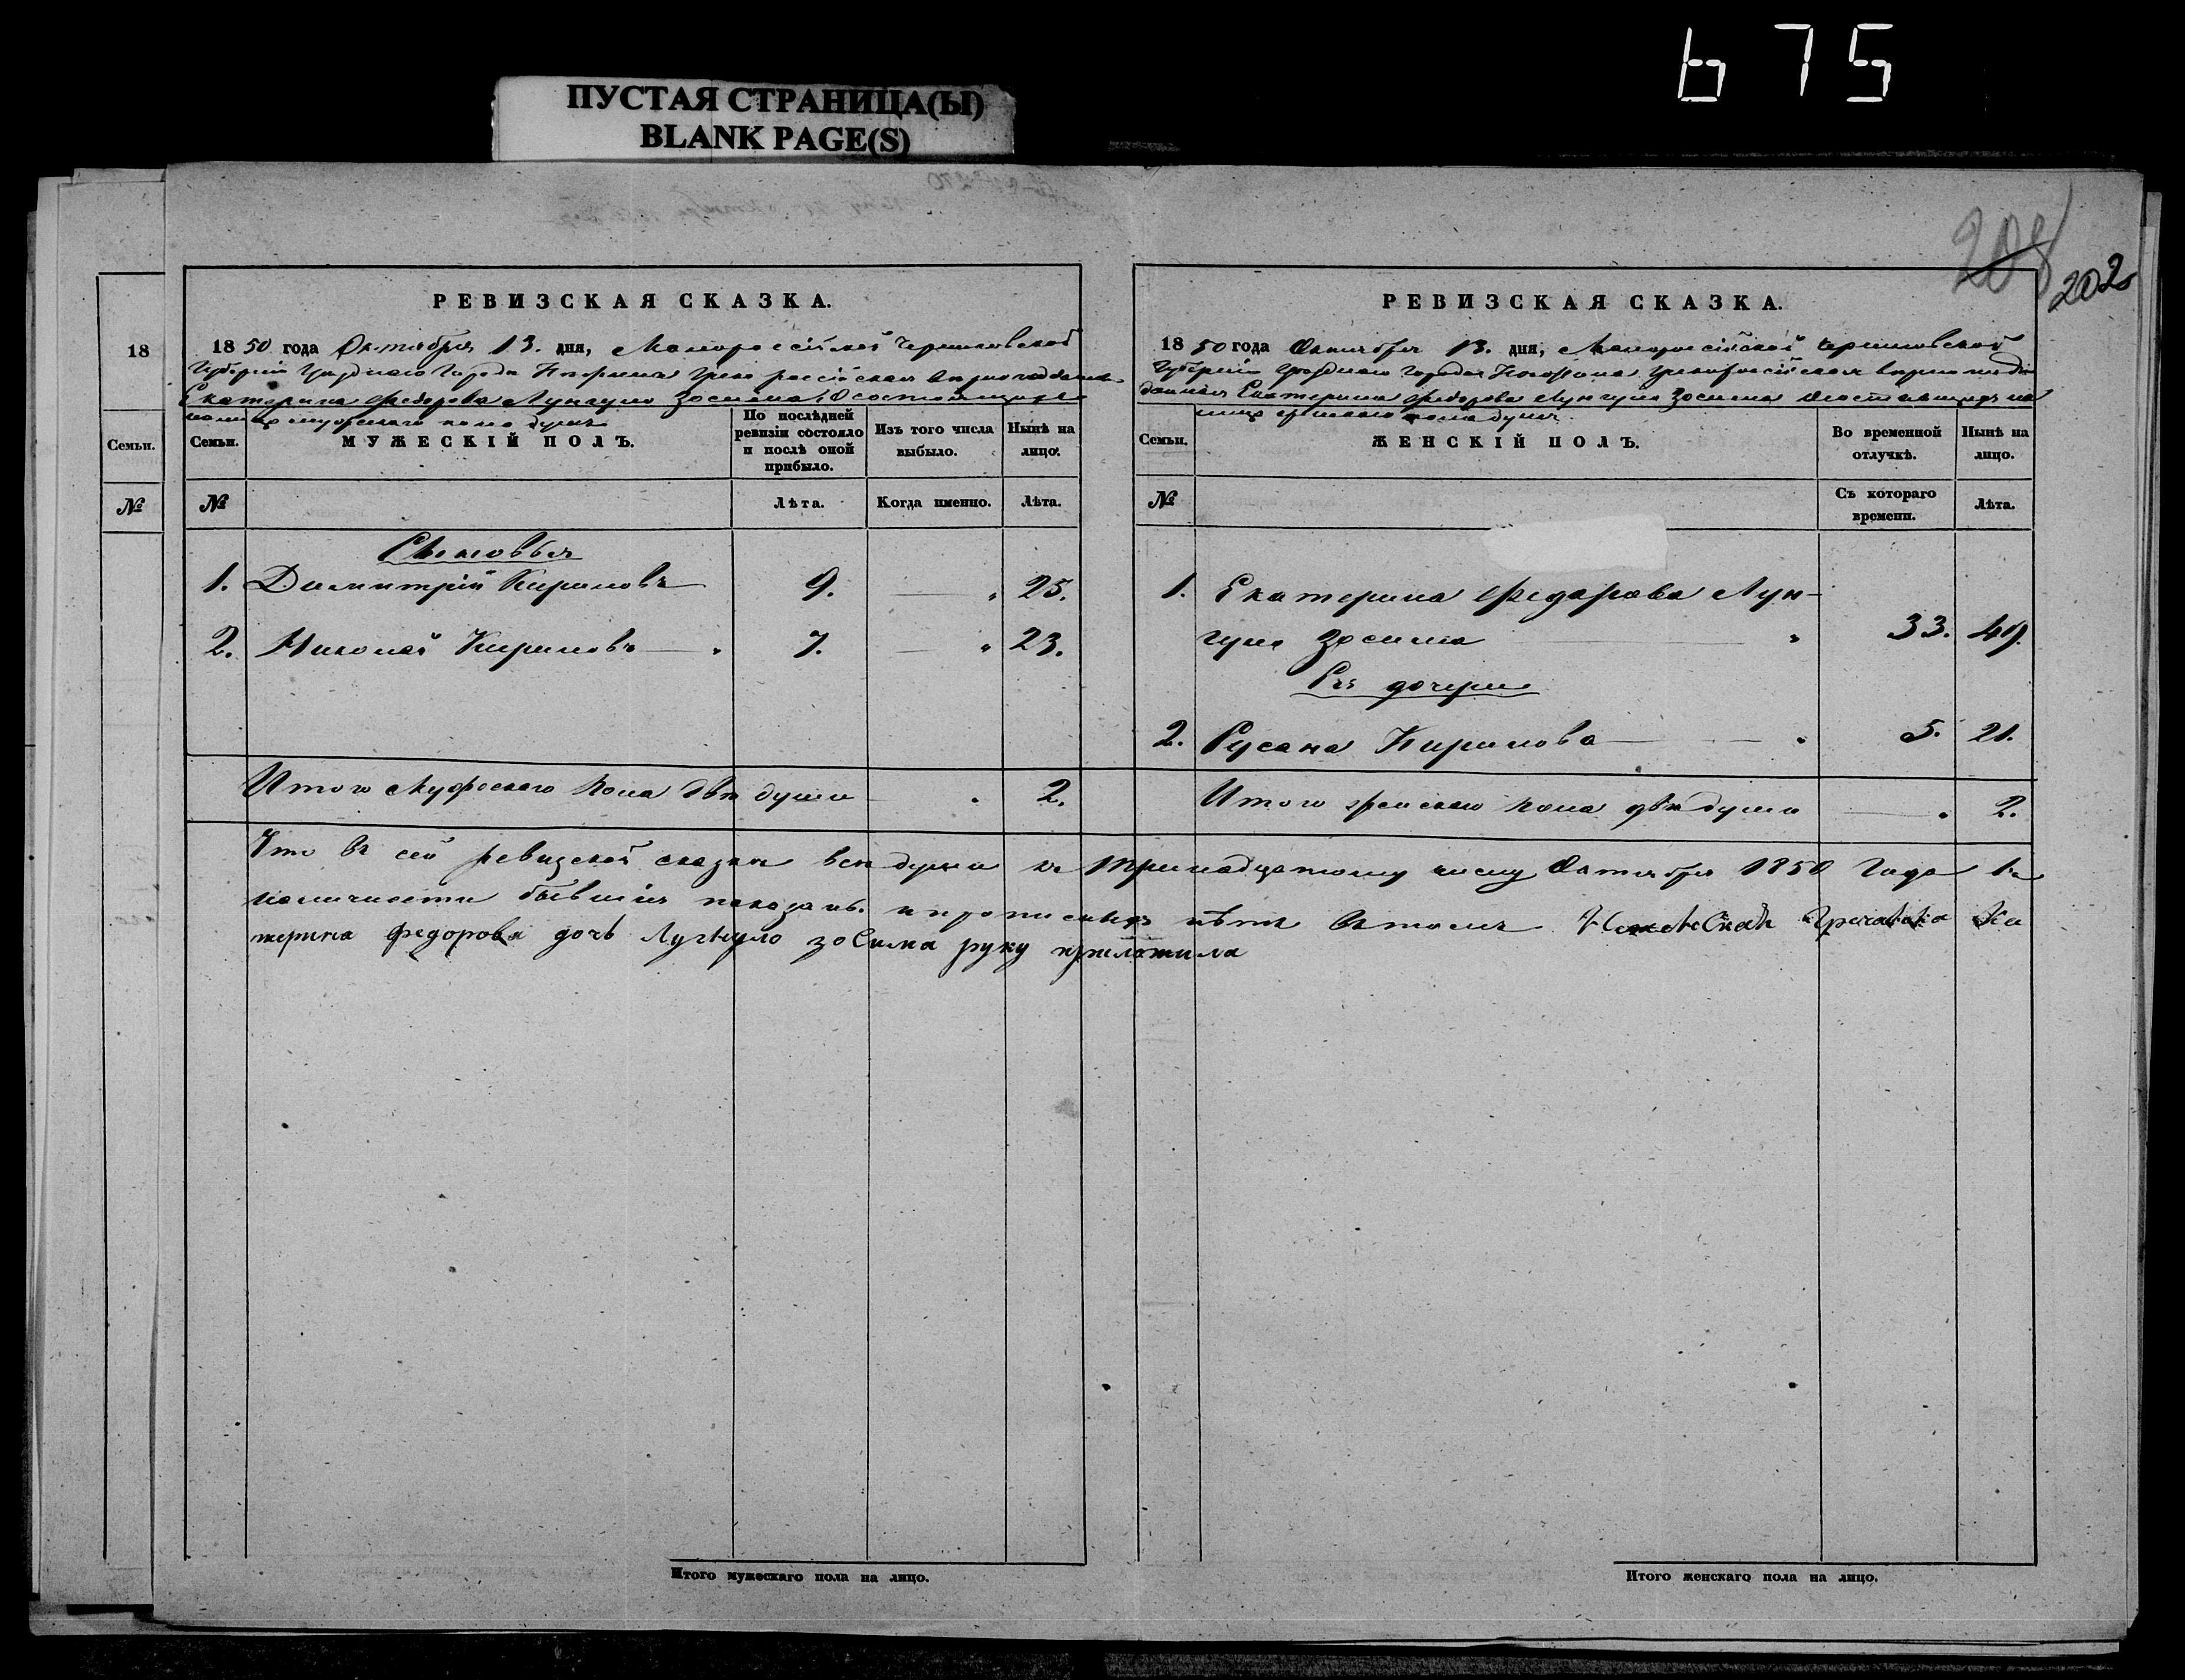 675
ПУСТАЯ СТРАНИЦА(Ы)
BLANK PAGE(S)
208
202
18
Семьи.
№
РЕВИЗСКАЯ СКАЗКА.
1850 года Октября 13. дня, Малороссійской Черниговской
Губерніи Уезднаго Города Нежина Греко россійская
Екатерина Федорова Зосима, О состоящихъ
мужескаго пола душъ
Семьи.
МУЖЕСКІЙ ПОЛЪ.
По послѣдней ревизіи состояло и послѣ оной прибыло.
Изъ того числа выбыло.
Нынѣ на лицо.
№
Лѣта.
Когда именно.
Лѣта.
Сыновья
1. Димитрій Кириловъ 9. — „ 25.
2. Николай Кириловъ — „ 7. — „ 23.
Итого Мужескаго Пола двѣ души — „ 2.
РЕВИЗСКАЯ СКАЗКА.
1850 года Октября 13. дня, Малороссійской Черниговской
Губерніи Уезднаго Города Нежина
Екатерина Федорова Зосима о состоящихъ на
лицо женскаго пола душъ
Семьи.
ЖЕНСКІЙ ПОЛЪ.
Во временной отлучкѣ.
Нынѣ на лицо.
№
Съ котораго времени.
Лѣта.
1. Екатерина Федорова Лун-
гуло Зосима — „ 33. 49.
Еѣ дочери
2. Русана Кирилова — „ 5. 21.
Итого женскаго пола двѣ души — „ 2.
Что въ сей ревизской сказки всѣ души къ Тринадцатому числу Октября 1850 Года въ
наличности бывшія показаны и прописныхъ нѣтъ въ томъ Гречанка Ка
терина федорова дочь зосима руку приложила
Итого мужескаго пола на лицо.
Итого женскаго пола на лицо.